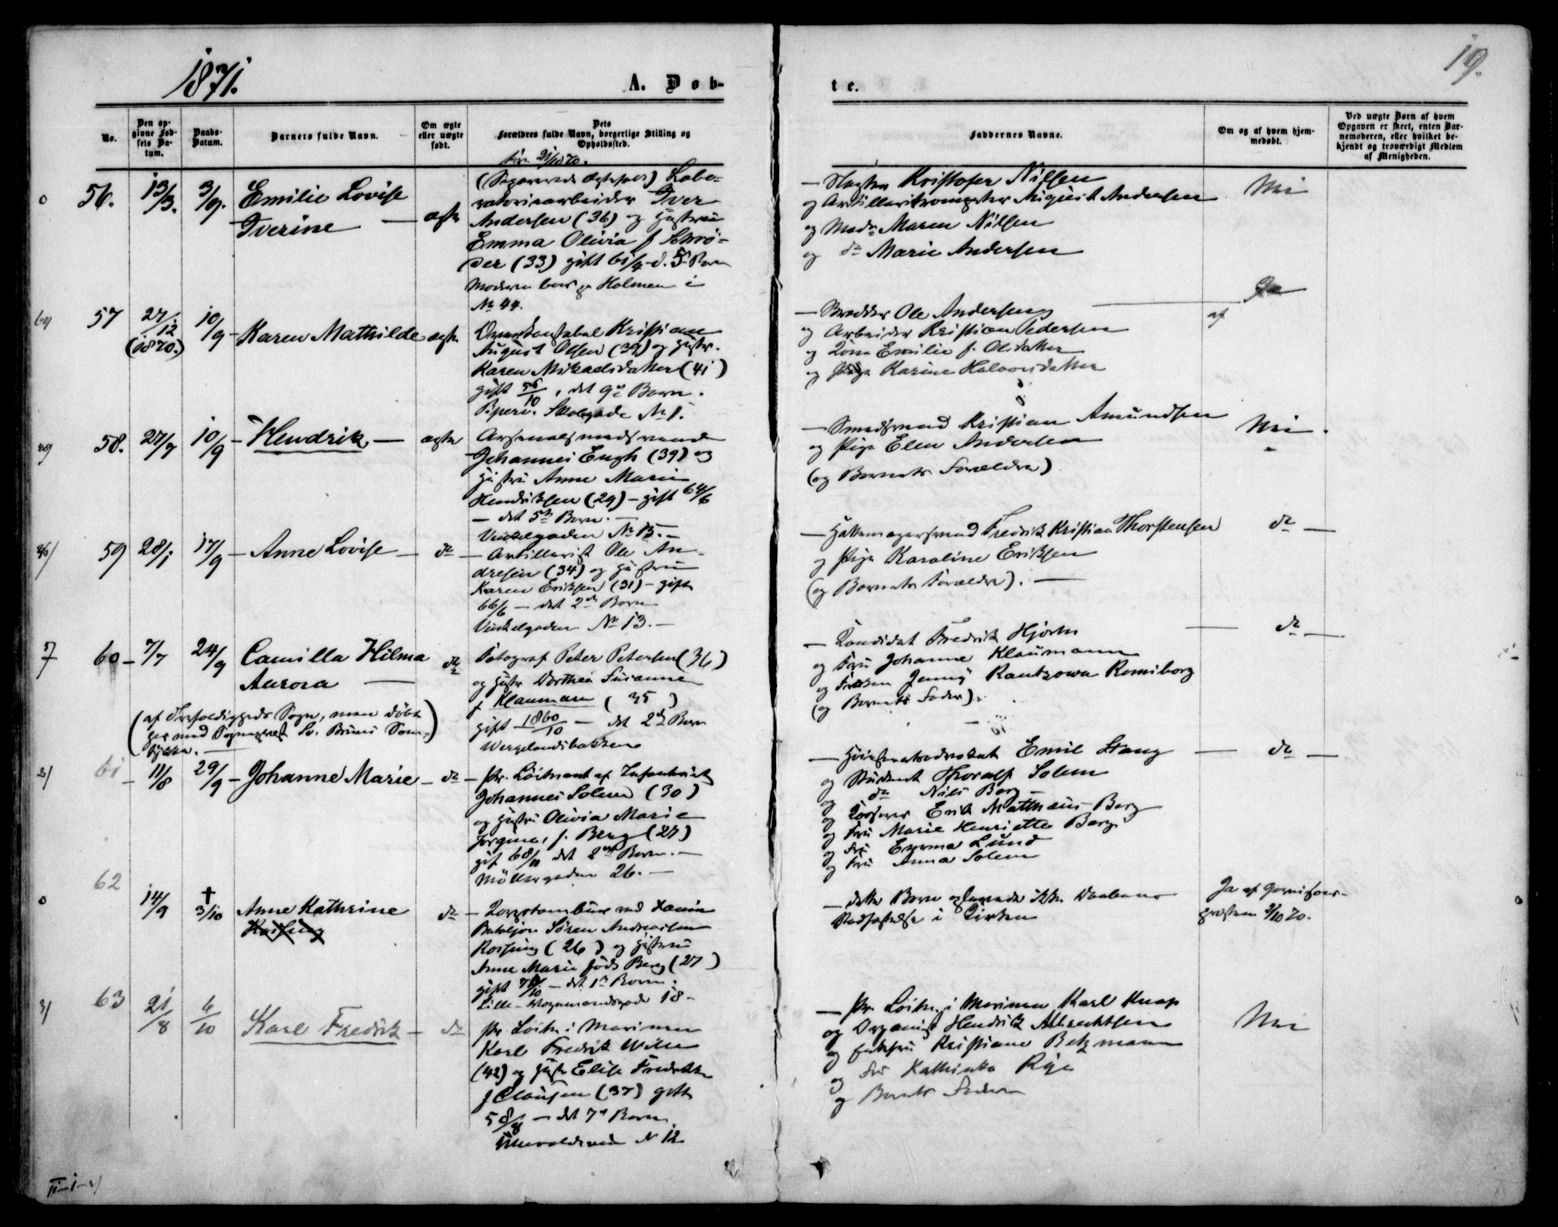 1871.
A. Døb-
te.
19.
No.
Den op-
givne Fød-
sels Da-
tum.
Daabs-
Datum.
Barnets fulde Navn.
Om ægte
eller uægte
født.
Dets
Forældres fulde Navn, borgerlige Stilling og
Opholdssted.
Faddernes Navne.
Om og af hvem hjem-
medøbt.
Ved uægte Børn af hvem
Opgaven er skeet, enten Bar-
nemoderen, eller hvilket be-
kjendt og troværdigt Medlem
af Menigheden.
56. 13/3. 3/9. Emilie Lovise
Iverine — ægte
Labo-
ratoriearbeider Iver
Andersen (36) og Hustru
Emma Olivia f. Schrø-
der (33) gift 61/9 d. 5te Barn
Moderen boer p. Holmen i
No 44.
Kristofer Nilsen
og Artilleritrompeter August Andersen
og Mad. Maren Nilsen
og do Marie Andersen
Nei
57 27/12 (1870.) 10/9 — Karen Mathilde ægte
Kristian
August Olsen (39) og Hustr.
Karen (41)
gift 56/10, det 9de Barn.
No 1.
— Ole Andersen
og Arbeider Kristian Pedersen
og Kone Emilie f. Olsdatter
og Pige Karine Halvorsdatter
Ja
af
58. 27/7 10/9 — Hendrik — ægte
Arsenalsmedsvend
Johannes Engh (39) og
Hustru Anne Marie
Hendriksen (29) — gift 64/6
— det 5te Barn. —
Vinkelgaden No 15. —
— Smedsvend Kristian Amundsen
og Pige Elen Andersen
(og Barnets Forældre)
Nei.
59 28/1 17/9 — Anne Lovise — do
— Artillerist Ole An-
dresen (34) og Hustru
Karen Eriksen (31) — gift
66/6 — det 2det Barn
Vinkelgaden No 13. —
— Hattemagersvend Fredrik Kristian Thorstensen
og Pige Karoline Eriksen
(og Barnets Forældre). —
do —
60 — 7/7 24/9 Camilla Hilma
Aurora — do
Fotograf Peter Petersen (36)
og Hustr. Dorthea Susanne
f. Klaumann (35)
gift 1860/10 — det 2det Barn
Wergelandsbakken
(af Trefoldigheds Sogn, men døbt
her med Sognepræst Sv. Bruns Sam-
tykke. —
— Kandidat Fredrik Hjorth
og Fru Johanne Klaumann
og Frøken Jenny Rantzow Romiborg
(og Barnets Fader).
— do —
61 — 11/8 29/9 — Johanne Marie — do
— Pr. Løitnant af Infanteriet
Johannes Solem (30)
og Hustru Olivia Marie
Jørgine, f. Berg (27)
gift 68/11 det 2det Barn. —
Møllergaden 26. —
— Høiesteretsadvokat Emil Stang
og Student Thoralf Solem
og do Nils Berg —
og Erik Matthæus Berg
og Fru Marie Henriette Berg
og Fru Emma Lund
og Frk. Anna Solem
— do —
62
14/9 † 3/10 Anne Kathrine
do — Korpstambur ved
Bataljon Søren Andreassen
Rossing (26) og Hustru
Anne Marie født Berg (27)
gift 70/10 — det 1ste Barn.
Lille-Vognmandsgade 18 —
— dette Barn oplevede ikke Daabens
Stadfæstelse i Kirken
Ja af Garnisons-
præsten 2/10 70.
63 21/8 6/10 Karl Fredrik — do
Pr. Løitn. i Marinen
Karl Fredrik Wille
(42) og Hustr. Elise Fredrikke
f. Clausen (37) gift
58/8 — det 7de Barn
Ullevoldsveien N 12
— Pr. Løitn. i Marinen Karl Knap
og Organist Hendrik Albrechtsen
og Enkefru Kristiane Betzmann
og Fru Kathinka Rye
og Barnets Fader
Nei